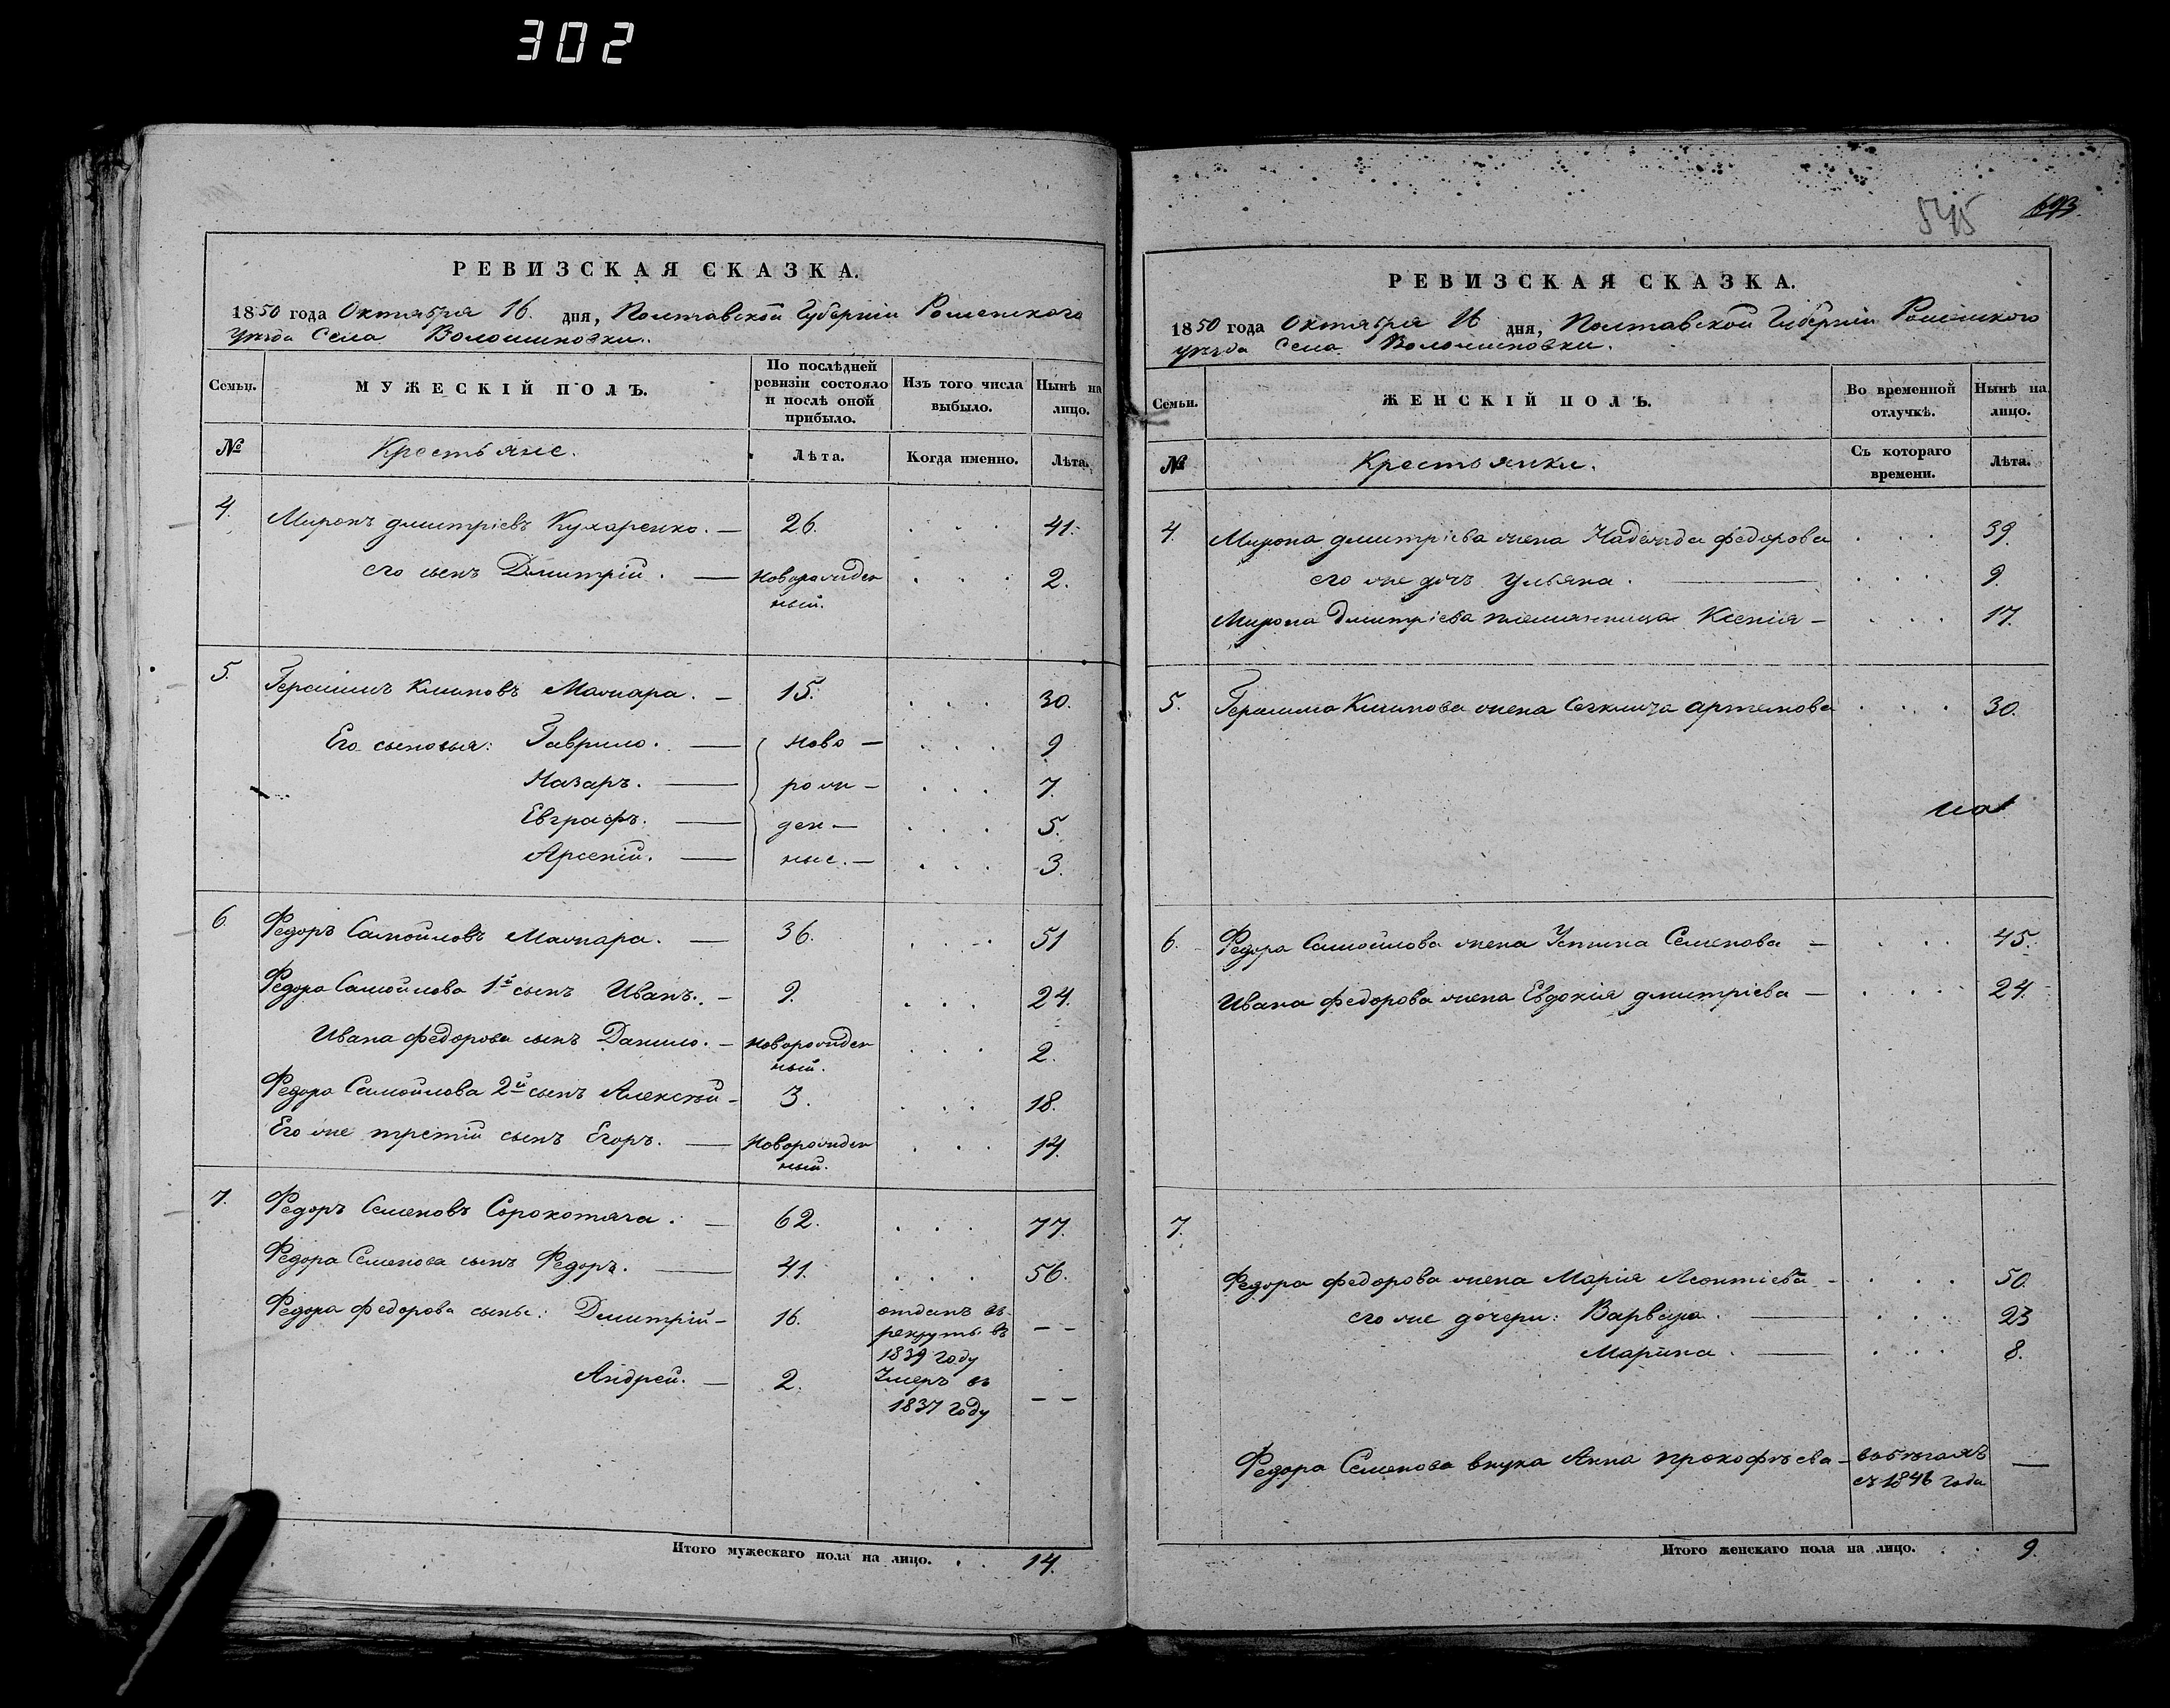 302
РЕВИЗСКАЯ СКАЗКА.
1850 года Октября 16. дня, Полтавской Губерніи Роменскаго
уѣзда Села Волошиновки.
Семьи. МУЖЕСКІЙ ПОЛЪ. По послѣдней ревизіи состояло и послѣ оной прибыло. Изъ того числа выбыло. Нынѣ на лицо.
№ Крестьяне. Лѣта. Когда именно. Лѣта.
4. Миронъ Дмитріевъ Кухаренко. — 26. . . . 41.
его сынъ Дмитрій. — новорожден . . . 2.
ный.
5. Герасимъ Климовъ Мажара. — 15. . . . 30.
Его сыновья: Гаврило. — ново — . . . 9
Назаръ. — рож — . . . 7.
Евграфъ. — ден — . . . 5.
Арсеній. — ные. — . . . 3.
6. Федоръ Самойловъ Мажара. — 36. . . . 51
Федора Самойлова 1й сынъ Иванъ. — 9. . . . 24.
Ивана Федорова сынъ Данило. — новорожден . . . 2.
ный.
Федора Самойлова 2й сынъ Алексѣй — 3. . . . 18.
Его же третій сынъ Егоръ. — новорожден . . . 14.
ный.
7. Федоръ Семеновъ Сорокотяга. — 62. . . . 77.
Федора Семенова сынъ Федоръ. — 41. . . . 56.
Федора Федорова сыны: Дмитрій — 16. отданъ въ — —
рекруты въ
1839 году
Андрей. — 2. Умеръ въ — —
1837 году
Итого мужескаго пола на лицо. . . 14.
545
РЕВИЗСКАЯ СКАЗКА.
1850 года Октября 16 дня, Полтавской Губерніи Роменскаго
уѣзда Села Волошиновки.
Семьи. ЖЕНСКІЙ ПОЛЪ. Во временной отлучкѣ. Нынѣ на лицо.
№ Крестьянки. Съ котораго времени. Лѣта.
4. Мирона Дмитріева жена Надежда Федорова . . . 39.
его же дочь Ульяна. — . . . 9.
Мирона Дмитріева племянница Ксенія — . . . 17.
5. Герасима Климова жена Артемова . . . 30.
6. Федора Самойлова жена Устина Семенова — . . . 45.
Ивана Федорова жена Евдокія Дмитріева — . . . 24.
7.
Федора Федорова жена Марія Леонтіева — . . . 50.
его же дочери: Варвара. — . . . 23
Марина. — . . . 8.
Федора Семенова внука Анна Прокофьева — въ бѣгахъ —
съ 1846 года
Итого женскаго пола на лицо. . . 9.